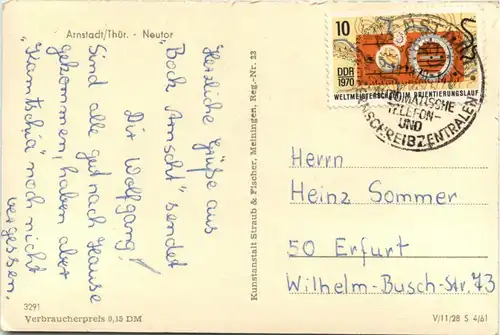 Arnstadt/Thür. - Neutor
Herzliche Grüße aus
"Bock Arnscht" sendet
Dir Wolfgang!
Sind alle gut nach Hause
gekommen, haben aber
"Kamtschia" noch nicht
vergessen.
3291
Verbraucherpreis 0,15 DM
Kunstanstalt Straub & Fischer, Meiningen, Reg.-Nr. 23
10
DDR
1970
WELTMEISTERSCHAFT IM ORIENTIERUNGSLAUF
AUTOMATISCHE
TELEFON-
UND
FERNSCHREIBZENTRALEN
Herrn
Heinz Sommer
50 Erfurt
Wilhelm-Busch-Str. 73
V/11/28 S 4/61